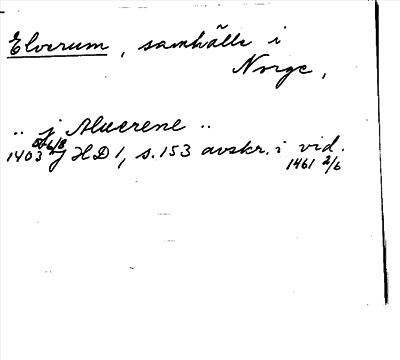 Elverum, samhälle i
Norge,
.. j Alwerene ..
1403 16/8 J HD 1, s. 153 avskr. i vid.
1461 2/6